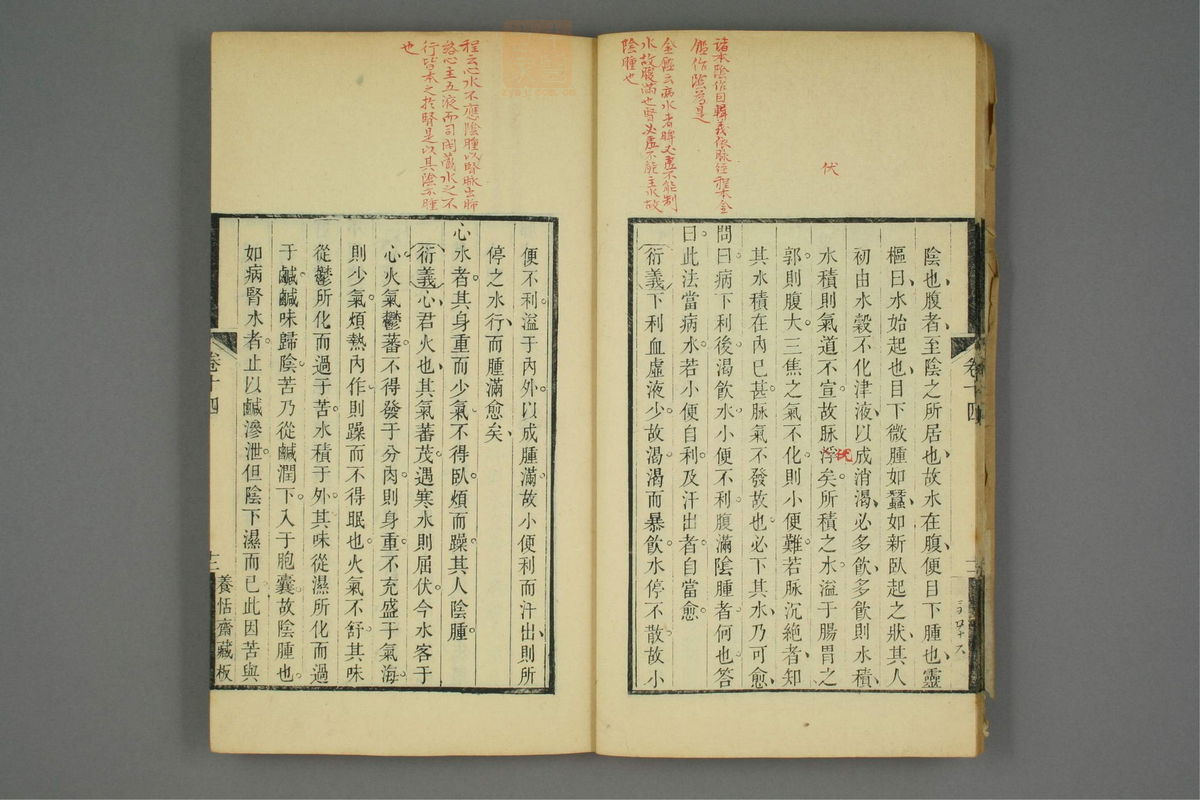 諸本陰作目輯義依脉經程本金
鑑作陰爲是
伏
金鑑云病水者脾必虛不能制
水故腹滿也腎必虛不能主水故
陰腫也
陰也腹者至陰之所居也故水在腹便目下腫也靈
樞曰水始起也目下微腫如蠶如新臥起之狀其人
初由水穀不化津液以成消渴必多飮多飮則水積
水積則氣道不宣故脉浮矣所積之水溢于腸胃之
沉
郭則腹大三焦之氣不化則小便難若脉沉絶者知
其水積在內已甚脉氣不發故也必下其水乃可愈
問曰病下利後渴飮水小便不利腹滿陰腫者何也答
曰此法當病水若小便自利及汗出者自當愈
衍義下利血虛液少故渴渴而暴飮水停不散故小
卷十四
程云心水不應陰腫以腎脉出肺
絡心主五液而司閉藏水之不
行皆本之於腎是以其陰亦腫
也
便不利溢于內外以成腫滿故小便利而汗出則所
停之水行而腫滿愈矣
心水者其身重而少氣不得臥煩而躁其人陰腫
衍義心君火也其氣蕃茂遇寒水則屈伏今水客于
心火氣鬱蕃不得發于分肉則身重不充盛于氣海
則少氣煩熱內作則躁而不得眠也火氣不舒其味
從鬱所化而過于苦水積于外其味從濕所化而過
于鹹鹹味歸陰苦乃從鹹潤下入于胞囊故陰腫也
如病腎水者止以鹹滲泄但陰下濕而已此因苦與
卷十四
養恬齋藏板